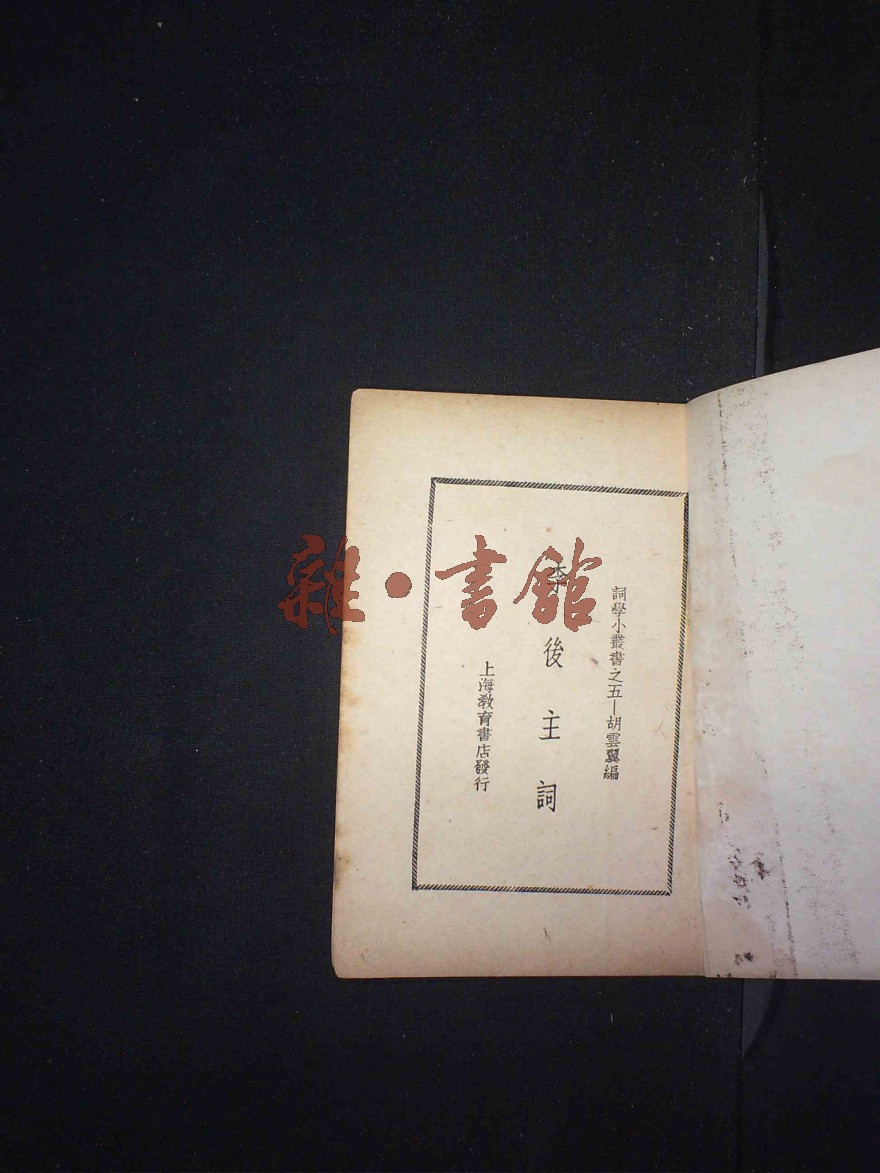 詞學小叢書之五—胡雲翼編
李後主詞
上海教育書店發行
雜·書館